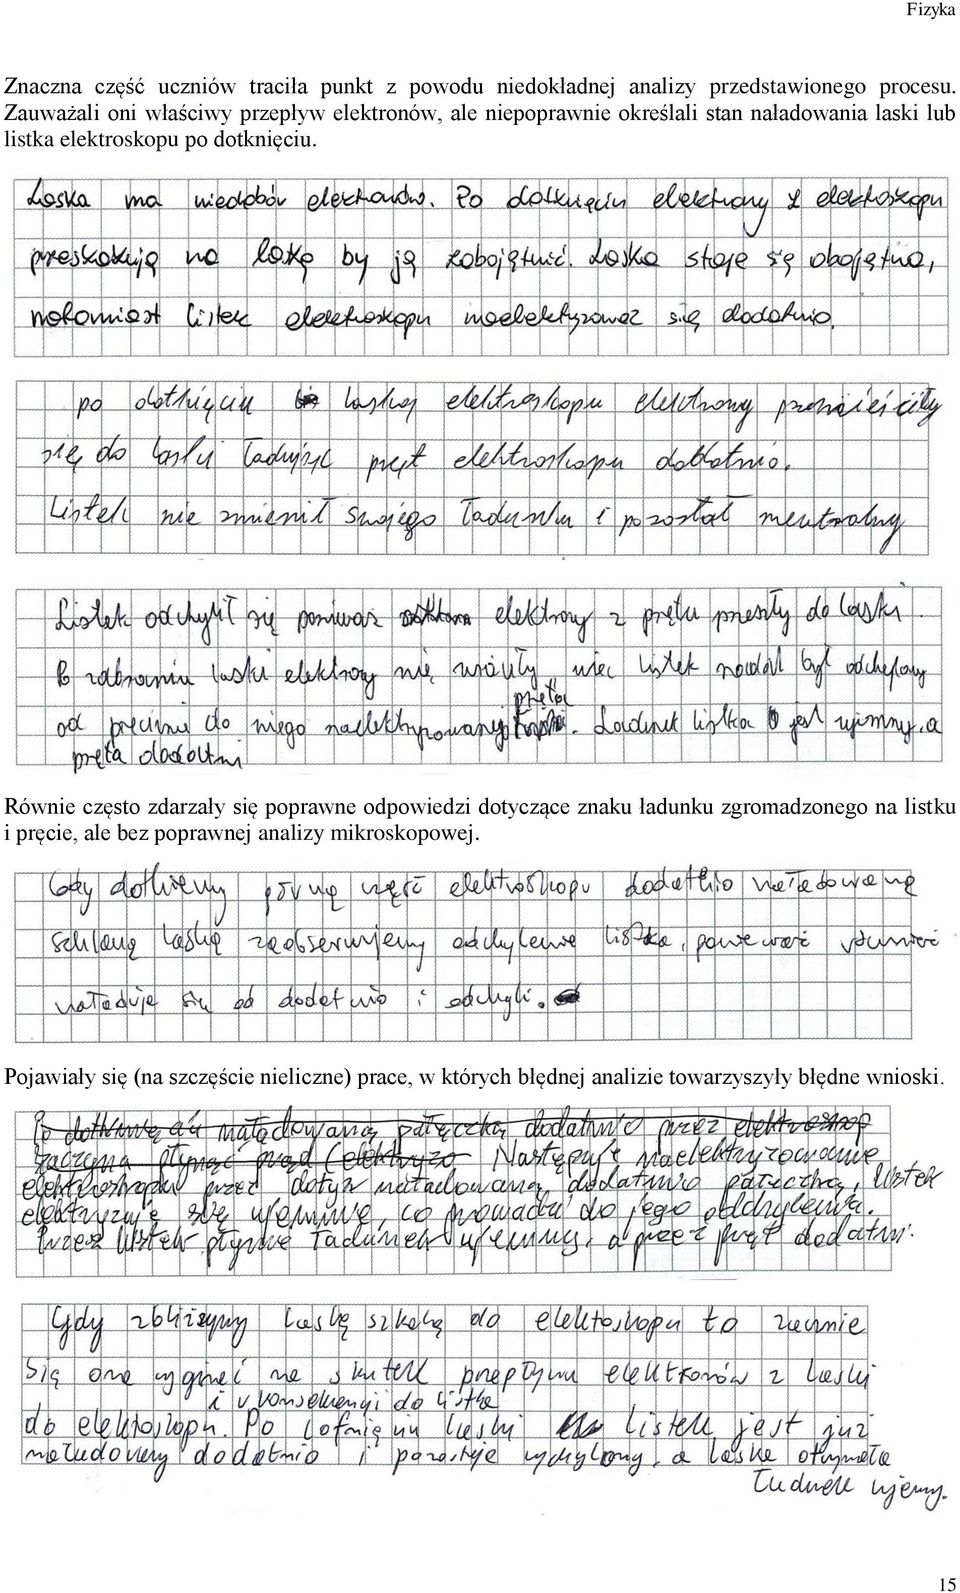 Fizyka
Znaczna część uczniów traciła punkt z powodu niedokładnej analizy przedstawionego procesu.
Zauważali oni właściwy przepływ elektronów, ale niepoprawnie określali stan naładowania laski lub
listka elektroskopu po dotknięciu.
Laska ma niedobór elektronów. Po dotknięciu elektrony z elektroskopu
przeskakują na laskę by ją zobojętnić. Laska staje się obojętna,
natomiast listek elektroskopu naelektryzował się dodatnio.
po dotknięciu laską elektroskopu elektrony przemieściły
się do laski ładując pręt elektroskopu dodatnio.
Listek nie zmienił swojego ładunku i pozostał neutralny
Listek odchylił się poniważ elektrony z prętu przeszły do laski.
Po zabraniu laski elektrony nie wróciły, więc listek nadal był odchylony
pręta
od przecinie do niego naelektryzowanego. Ładunek listka jest ujemny, a
pręta dodatni
Równie często zdarzały się poprawne odpowiedzi dotyczące znaku ładunku zgromadzonego na listku
i pręcie, ale bez poprawnej analizy mikroskopowej.
Gdy dotkniemy górną część elektroskopu dodatnio naładowaną
szklaną laskę zaobserwujemy odchylenie listka, ponieważ również
naładuje się od dodatnio i odchyli.
Pojawiały się (na szczęście nieliczne) prace, w których błędnej analizie towarzyszyły błędne wnioski.
Po naładowaną pałeczką dodatnio przez elektroskop
zaczyna płynąć prąd (elektryzo Następuje naelektryzowanie
elektroskopu przez dotyk naładowaną dodatnio pałeczką, listek
elektryzuje się ujemnie, co prowadzi do jego odchylenia.
Przez listek płynie ładunek ujemny, a przez pręt dodatni.
Gdy zbliżymy laskę szklaną do elektoskopu to zacznie
się ona wyginać na skutek przepływu elektronów z laski
i w konsekwencji do listka
do elektoskopu. Po cofnięciu laski listek jest już
naładowany dodatnio i pozostaje wychylony, a laska otrzymała
ładunek ujemy.
15